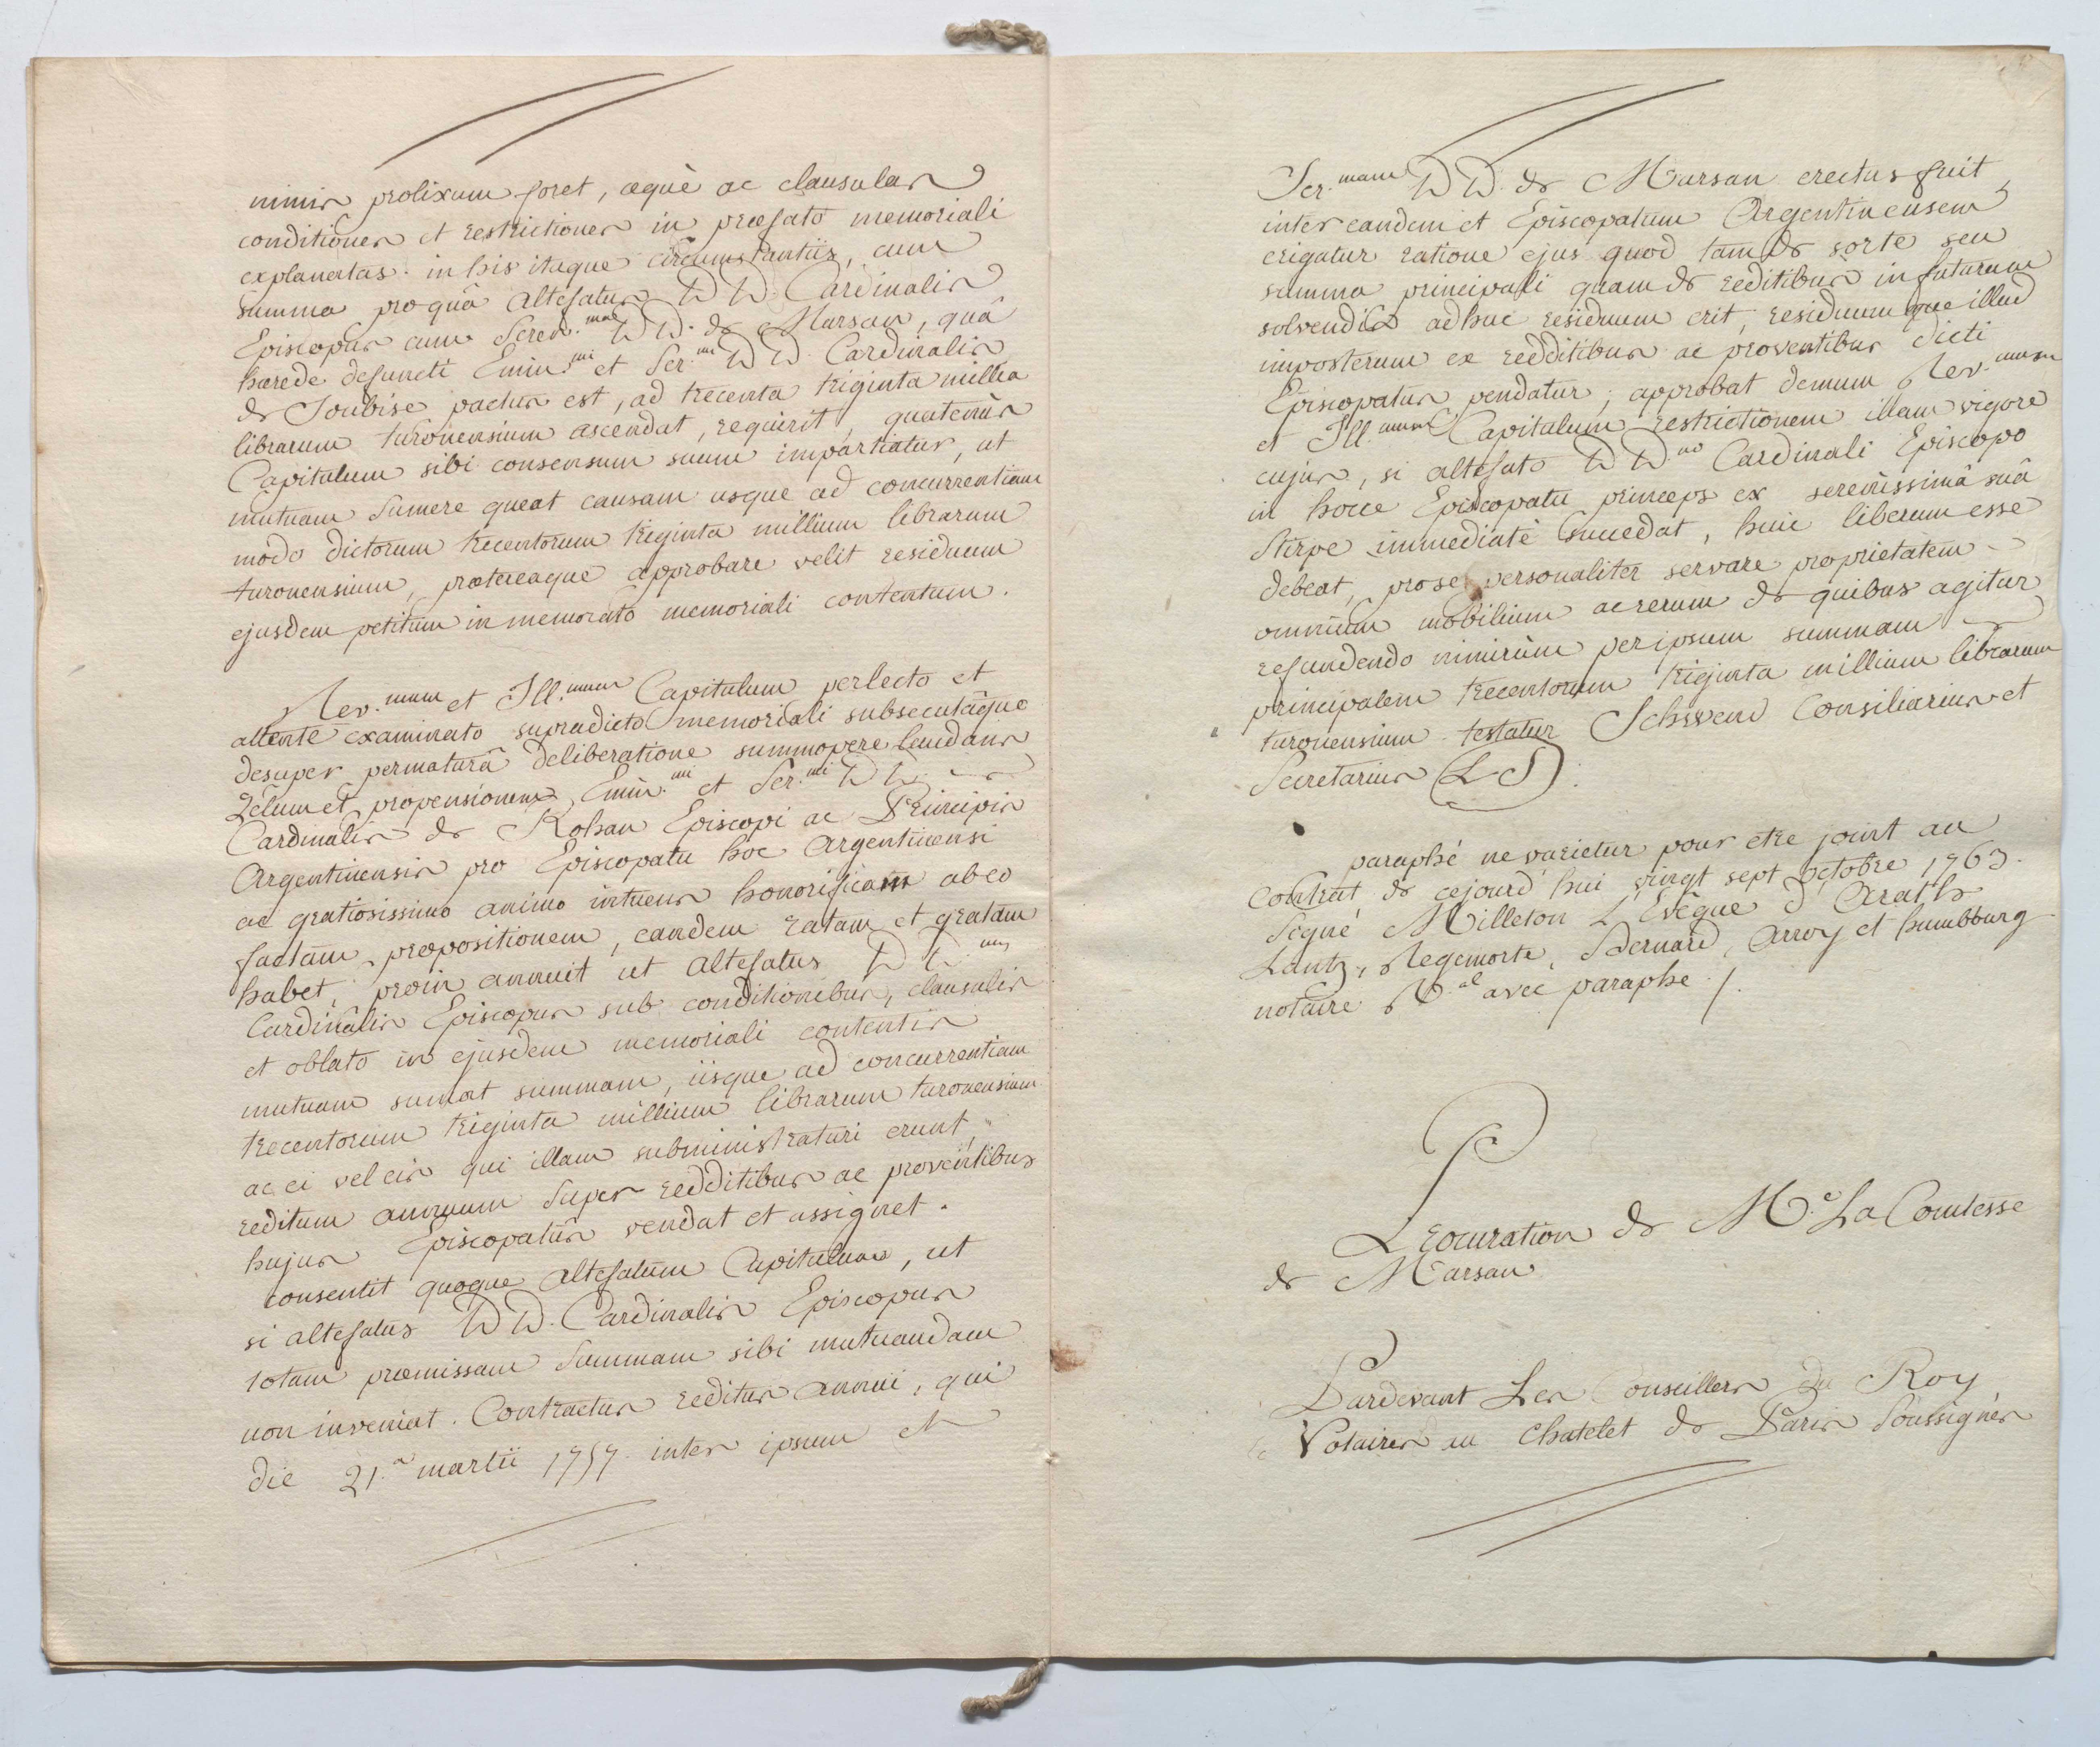 nimis prolixum foret, æquè ac clausulas
conditiones et restrictiones in præfato memoriali
explanatas. in his itaque circumstantiis, cum
summa pro quâ altefatus DD. Cardinalis
Episcopus cum Seren.mae DD. de Marsan, quâ
hærede defuncti Emin.mi et Ser.mi DD. Cardinalis
de Soubise pactus est, ad trecenta triginta millia
librarum turonensium ascendat, requirit, quatenùs
Capitulum sibi consensum suum impartiatur, ut
mutuam sumere queat causam usque ad concurrentiam
modo dictorum trecentorum triginta millium librarum
turonensium, prætereaque approbare velit residuum
ejusdem petitum in memorato memoriali contentum.
Rev.mum et Ill.mum Capitulum perlecto et
attentè examinato supradicto memoriali subsecutâque
desuper permaturâ deliberatione summopere laudans
Zelum et propensionem Emin.mi et Ser.mi DD.
Cardinalis de Rohan Episcopi ac Principis
Argentinensis pro Episcopatu hoc Argentinensi
ac gratiosissimo animo intuens honorificam ab eo
factam propositionem, eandem ratam et gratam
habet, proin annuit ut altefatus DD.nus
Cardinalis Episcopus sub conditionibus, clausulis
et oblato in ejusdem memoriali contentis
mutuam sumat summam, usque ad concurrentiam
trecentorum triginta millium librarum turonensium
ac ei vel eis qui illam subministraturi erunt,
reditum annuum super redditibus ac proventibus
hujus Episcopatûs vendat et assignet.
consentit quoque altefatum Capitulum, ut
si altefatus DD. Cardinalis Episcopus
totam præmissam summam sibi mutuandam
non inveniat. Contractus reditus annui, qui
die 21.a martii 1757. inter ipsum et
Ser.mam DD. de Marsan erectus fuit,
inter eandem et Episcopatum Argentinensem
erigatur ratione ejus quod tam de sorte seu
summa principali quam de reditibus in futurum
solvendis adhuc residuum erit, residuumque illud
imposterum ex redditibus ac proventibus dicti
Episcopatus pendatur; approbat demum Rev.mum
et Ill.mum Capitulum restrictionem illam vigore
cujus, si altefato DD.no Cardinali Episcopo
in hocce Episcopatu princeps ex serenissimâ suâ
Stirpe immediatè succedat, huic liberum esse
debeat, pro se personaliter servare proprietatem
omnium mobilium ac rerum de quibus agitur
refundendo nimirùm per ipsum summam
principalem trecentorum triginta millium librarum
turonensium. testatur Schwend Consiliarius et
Secretarius (L S)
paraphé ne varietur pour etre joint au
Contrat de cejourd'hui vingt sept octobre 1763.
Signé Milleton L'Evêque d'Arath
Lantz, Regemorte, Bernard, Arroy et humbourg
notaire R.al avec paraphe ./.
Procuration de M.e La Comtesse
de Marsan
Pardevant Les Conseillers du Roy
Notaires au Chatelet de Paris Soussignés